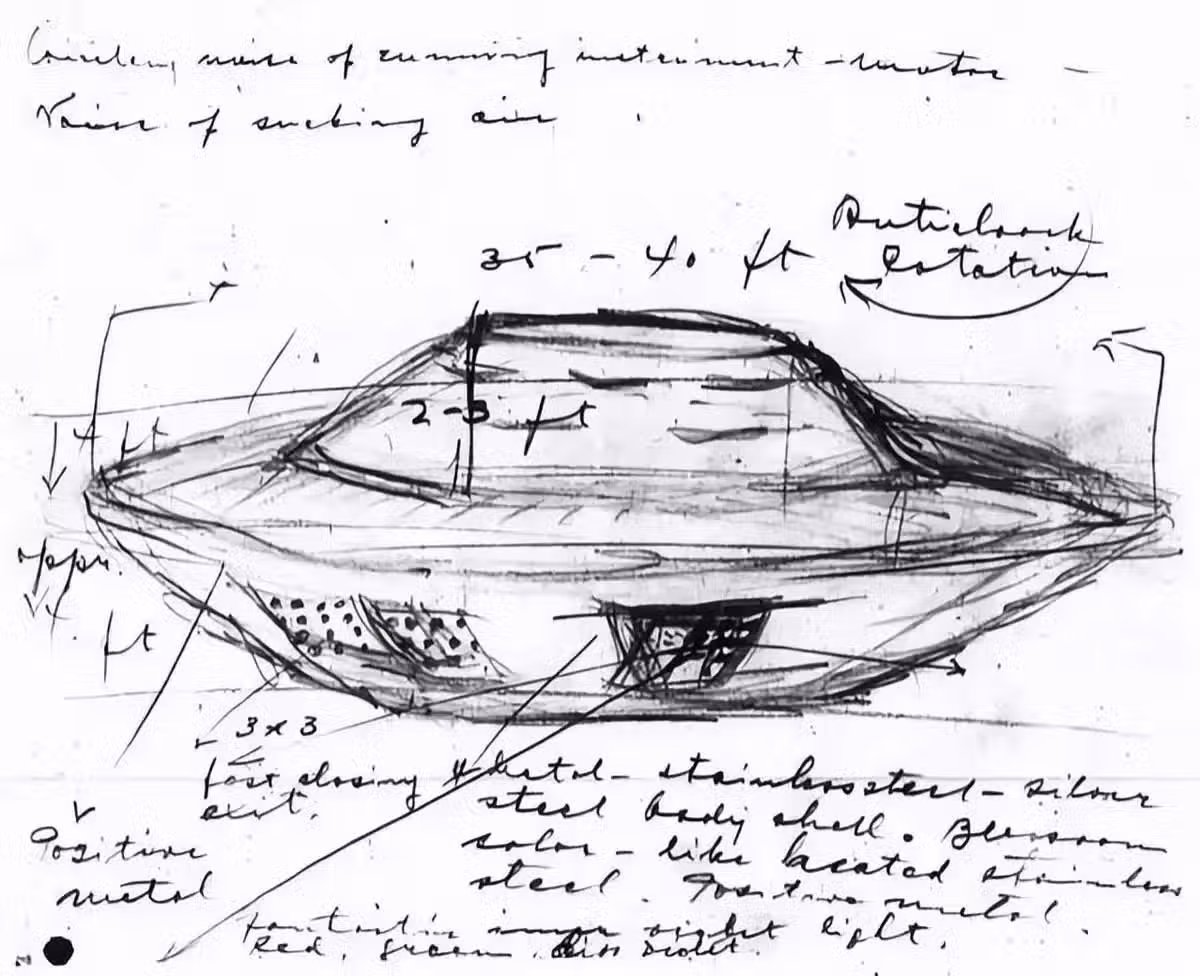 noise of running instrument - motor -
Noise of sucking air
35 - 40 ft
Anticlock
rotation
2-3 ft
4 ft
appr.
4 ft
3 x 3
fast closing
exit.
Positive
metal
metal - stainless steel - silver
steel body shell. Blossom
color - like heated stainless
steel. Positive metal
fantastic inner violet light.
Red, green, violet.